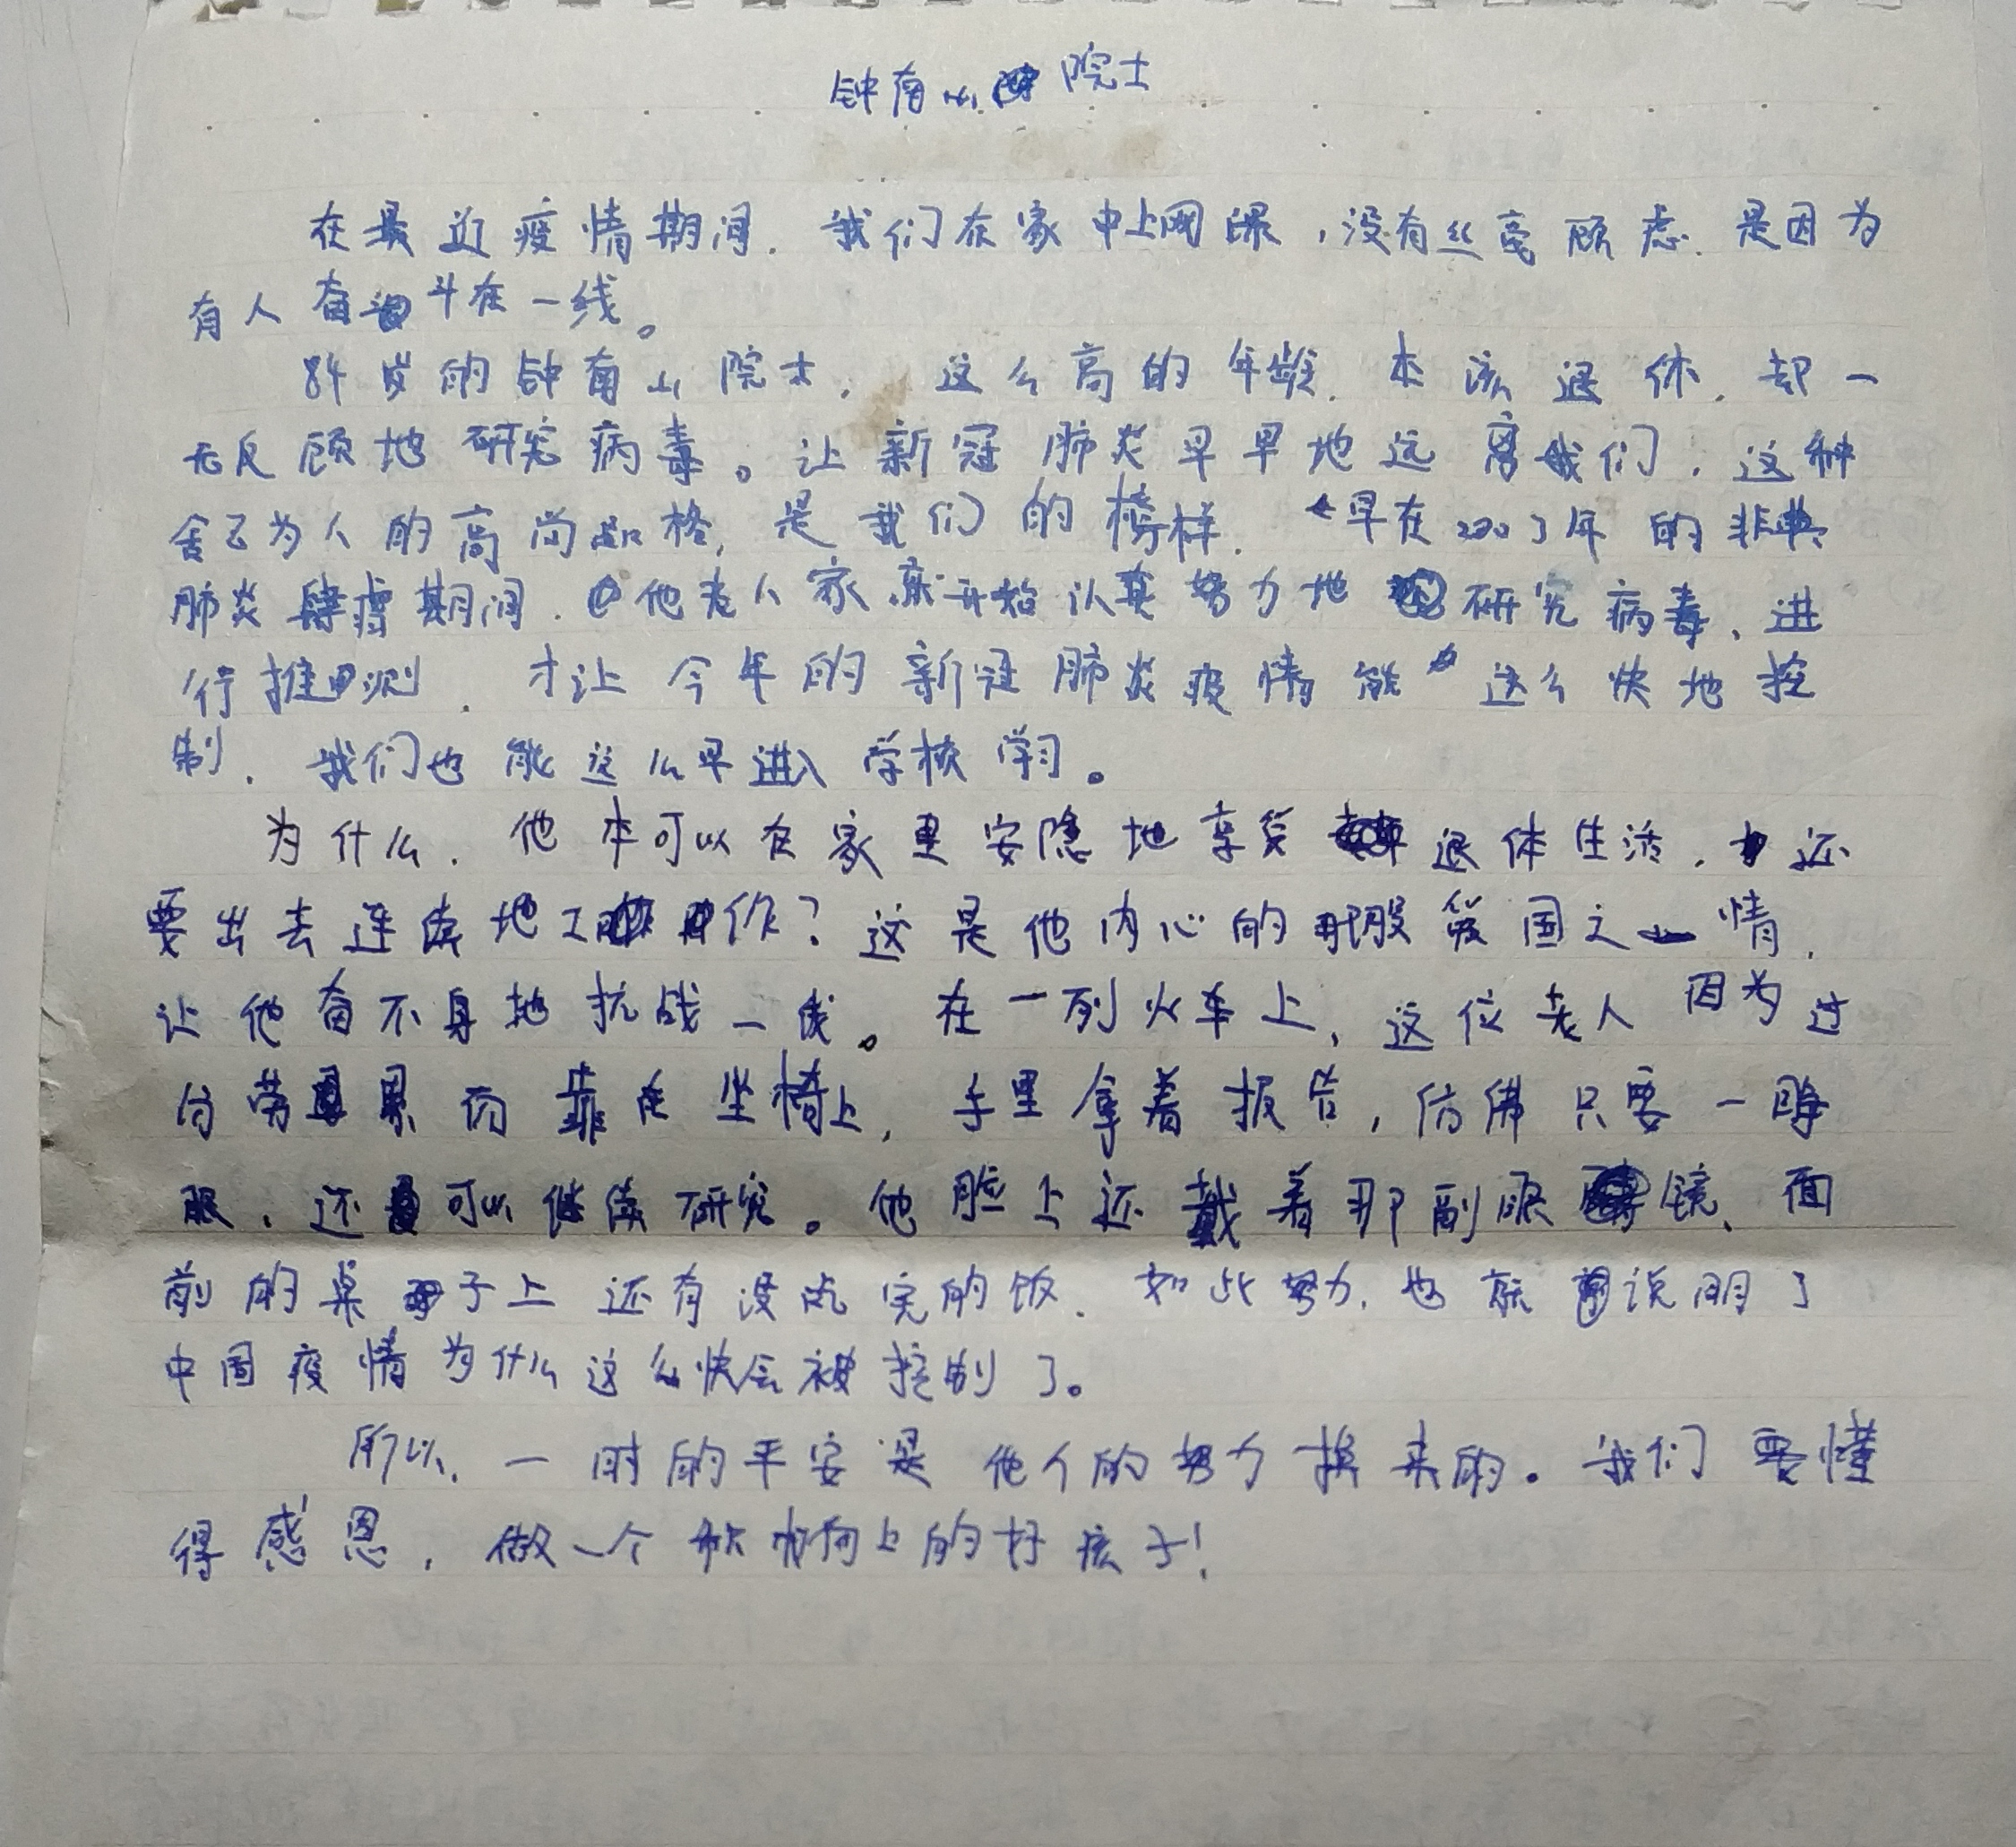 钟南山院士
在最近疫情期间，我们在家中上网课，没有丝毫顾虑，是因为
有人奋斗在一线。
84岁的钟南山院士，这么高的年龄，本该退休，却一
无反顾地研究病毒。让新冠肺炎早早地远离我们，这种
舍己为人的高尚品格，是我们的榜样，早在2003年的非典
肺炎肆虐期间，他老人家就开始认真努力地研究病毒、进
行推测，才让今年的新冠肺炎疫情能这么快地控
制，我们也能这么早进入学校学习。
为什么，他本可以在家里安隐地享受退休生活，还
要出去连续地工作？这是他内心的那股爱国之情，
让他奋不身地抗战一线。在一列火车上，这位老人因为过
份劳累而靠在坐椅上，手里拿着报告，仿佛只要一睁
眼，还可以继续研究。他脸上还戴着那副眼镜、面
前的桌子上还有没吃完的饭，如此努力，也就说明了
中国疫情为什么这么快会被控制了。
所以，一时的平安是他人的努力换来的。我们要懂
得感恩，做一个积极向上的好孩子！